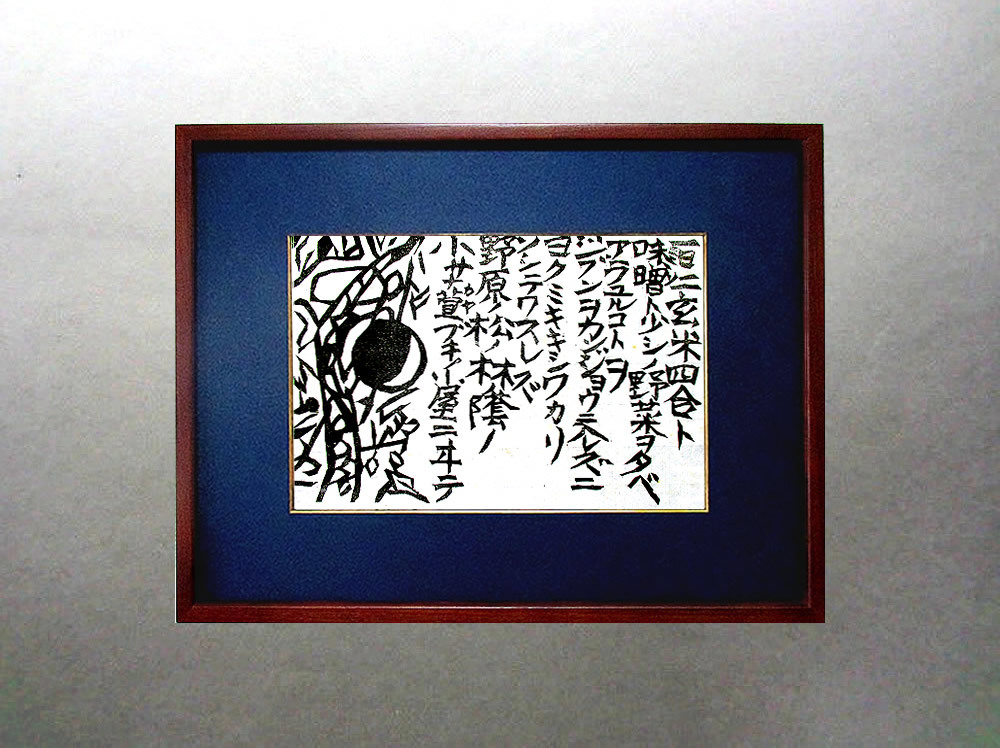 一日ニ玄米四合ト
味噌ト少シノ野菜ヲタベ
アラユルコトヲ
ジブンヲカンジョウニ入レズニ
ヨクミキキシワカリ
ソシテワスレズ
野原ノ松ノ林ノ陰ノ
小サナ萱ブキノ小屋ニヰテ